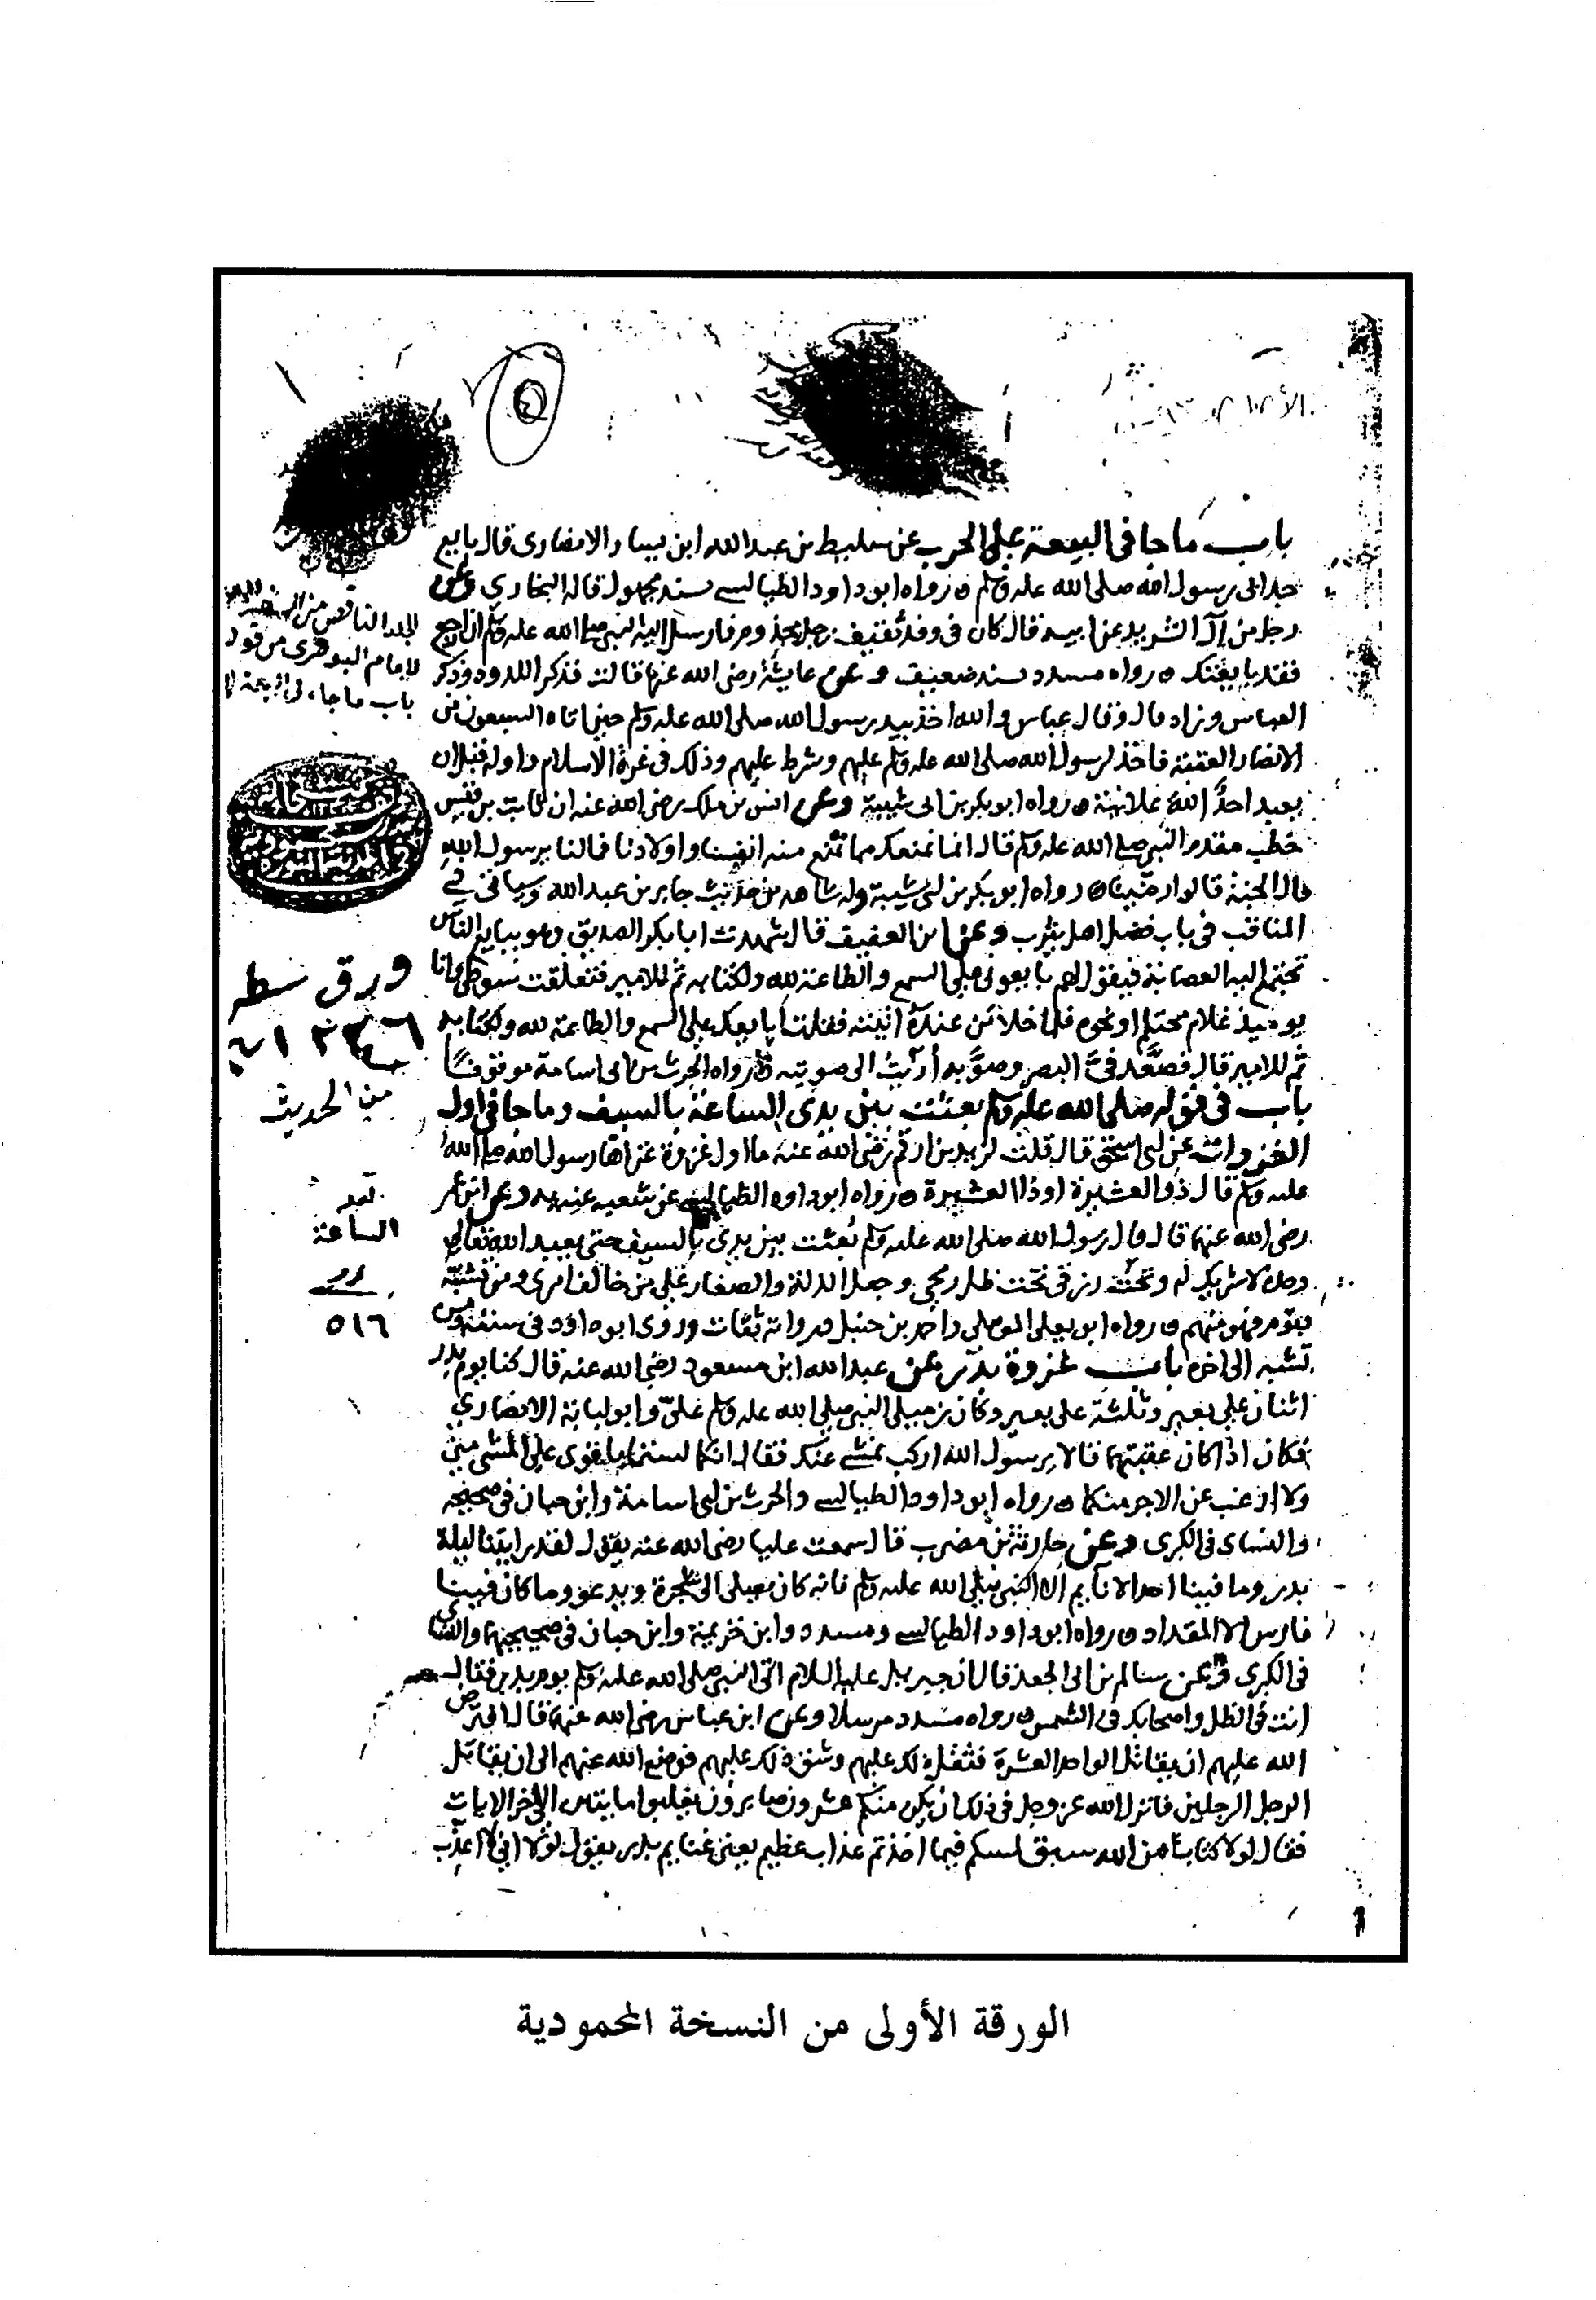 باب ما جا فى البيعة على الحرب عن سليط بن عبد الله ابن يسار الانصارى قال بايع
جدى رسول الله صلى الله عليه وسلم رواه ابو داود الطيالسى بسند مجهول قاله البخارى وعن
رجل من آل الشريد عن ابيه قال كان فى وفد ثقيف رجل مجذوم فارسل اليه النبى صلى الله عليه وسلم ان ارجع
فقد بايعتك رواه مسدد بسند ضعيف وعن عايشة رضى الله عنها قالت فذكر اللدود وذكر
العباس وزاد قال وقال عباس والله اخذ بيد رسول الله صلى الله عليه وسلم حين اتاه السبعون من
الانصار العقبة فاخذ لرسول الله صلى الله عليه وسلم عليهم وشرط عليهم وذلك فى غرة الاسلام واوله قبل ان
يعبد احد الله علانية رواه ابو بكر بن ابى شيبة وعن انس بن ملك رضى الله عنه ان ثابت بن قيس
خطب مقدم النبى صلى الله عليه وسلم قال انما نمنعك مما نمنع منه انفسنا واولادنا فما لنا يرسول الله
قال الجنة قالوا رضينا رواه ابو بكر بن ابى شيبة وله شاهد من حديث جابر بن عبد الله وسياتى فى
المناقب فى باب فضل اهل يثرب وعن ابن العفيف قال شهدت ابا بكر الصديق وهو يبايع الناس
تجتمع اليه العصابة فيقول لهم بايعونى على السمع والطاعة لله ولكتابه ثم للامير فتعلقت سوطى وانا
يوميذ غلام محتلم او نحوه فلما خلا من عنده اتيته فقلت ابايعك على السمع والطاعة لله ولكتابه
ثم للامير قال فصعد فى البصر وصوبه رواه الحرث بن ابى اسامة موقوفا
باب فى قوله صلى الله عليه وسلم بعثت بين يدى الساعة بالسيف وما جا فى اول
الغزوات عن ابى اسحق قال قلت لزيد بن ارقم رضى الله عنه ما اول غزوة غزاها رسول الله صلى الله
عليه وسلم قال ذو العشيرة او ذا العشيرة رواه ابو داود الطيالسى عن شعبة عنه به وعن ابن عمر
رضى الله عنهما قال قال رسول الله صلى الله عليه وسلم بعثت بين يدى بالسيف حتى يعبد الله تعالى
وحده لا شريك له وجعل رزقى تحت ظل رمحى وجعل الذلة والصغار على من خالف امرى ومن تشبه
بقوم فهو منهم رواه ابو يعلى الموصلى واحمد بن حنبل ورواته ثقات وروى ابو داود فى سننه ومن
تشبه الى اخره باب غزوة بدر عن عبد الله ابن مسعود رضى الله عنه قال كنا يوم بدر
اثنان على بعير وثلثة على بعير وكان زميلى النبى صلى الله عليه وسلم على وابو لبابة الانصارى
فكان اذا كان عقبتهما قالا يرسول الله اركب نمشى عنك فقال انكما لستما باقوى على المشى منى
ولا ارغب عن الاجر منكما رواه ابو داود الطيالسى والحرث بن ابى اسامة وابن حبان فى صحيحه
والنساى فى الكبرى وعن حارثة بن مضرب قال سمعت عليا رضى الله عنه يقول لقد رايتنا ليلة
بدر وما فينا احد الا نايم الا النبى صلى الله عليه وسلم فانه كان يصلى الى شجرة ويدعو وما كان فينا
فارس الا المقداد رواه ابو داود الطيالسى ومسدد وابن خزيمة وابن حبان فى صحيحيهما والنساى
فى الكبرى وعن سالم بن ابى الجعد قال ان جبريل عليه السلام اتى النبى صلى الله عليه وسلم يوم بدر فقال
انت فى الظل واصحابك فى الشمس رواه مسدد مرسلا وعن ابن عباس رضى الله عنهما قال افترض
الله عليهم ان يقاتل الواحد العشرة فثقل ذلك عليهم وشق ذلك عليهم فوضع الله عنهم الى ان يقاتل
الرجل الرجلين فانزل الله عز وجل فى ذلك ان يكن منكم عشرون صابرون يغلبوا مايتين الى اخر الايات
فقال لولا كتاب من الله سبق لمسكم فيما اخذتم عذاب عظيم يعنى غنايم بدر يقول لولا انى لا اعذب
الجلد الناقص من
للامام البوصرى من قوله
باب ما جاء فى البيعة
ورق سطر
من الحديث
الساعة
٥١٦
الورقة الأولى من النسخة المحمودية